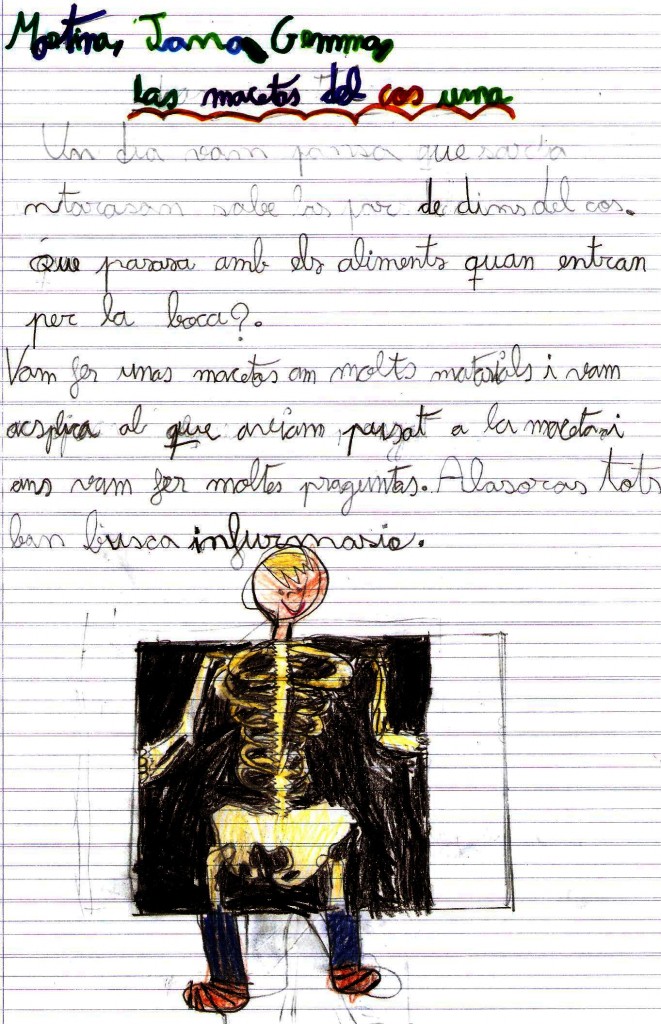 Martina, Jana, Gemma,
las macetas del cos uma
Un dia vam pensa que saria
ntarasan sabe las par de dins del cos.
Que pasasa amb els aliments quan entran
per la boca?.
Vam fer unas macetas am molts matarials i vam
acsplica al que aviam pasat a la maceta i
ens vam fer moltes praguntas. Alasoras tots
ban busca infurmasio.